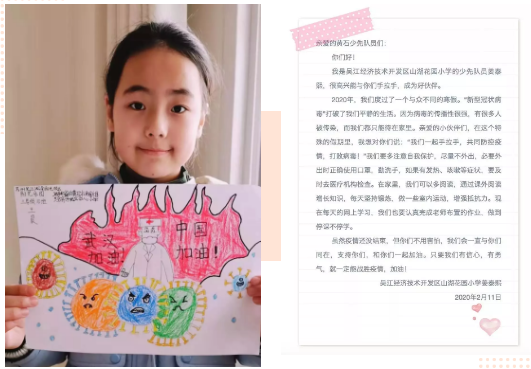 武汉
加油!
中国
加油!
亲爱的黄石少先队员们:
你们好!
我是吴江经济技术开发区山湖花园小学的少先队员姜泰
熙,很高兴能与你们手拉手,成为好伙伴。
2020年,我们度过了一个与众不同的寒假。“新型冠状病
毒”打破了我们平静的生活。因为病毒的传播性很强,有很多人
被传染,而我们都只能待在家里。亲爱的小伙伴们,在这个特
殊的假期里,我想对你们说:“我们一起手拉手,共同防控疫
情,打败病毒!”我们要多注意自我保护,尽量不外出,必要外
出时正确使用口罩,勤洗手,如果有发热、咳嗽等症状,要及
时去医疗机构检查。在家里,我们可以多阅读,通过课外阅读
增长知识,每天坚持锻炼,做一些室内运动,增强抵抗力。现
在每天的网上学习,我们也要认真完成老师布置的作业,做到
停课不停学。
虽然疫情还没结束,但你们不用害怕,我们会一直与你们
同在,支持你们,和你们一起加油。只要我们有信心,有勇
气,就一定能战胜疫情,加油!
吴江经济技术开发区山湖花园小学姜泰熙
2020年2月11日